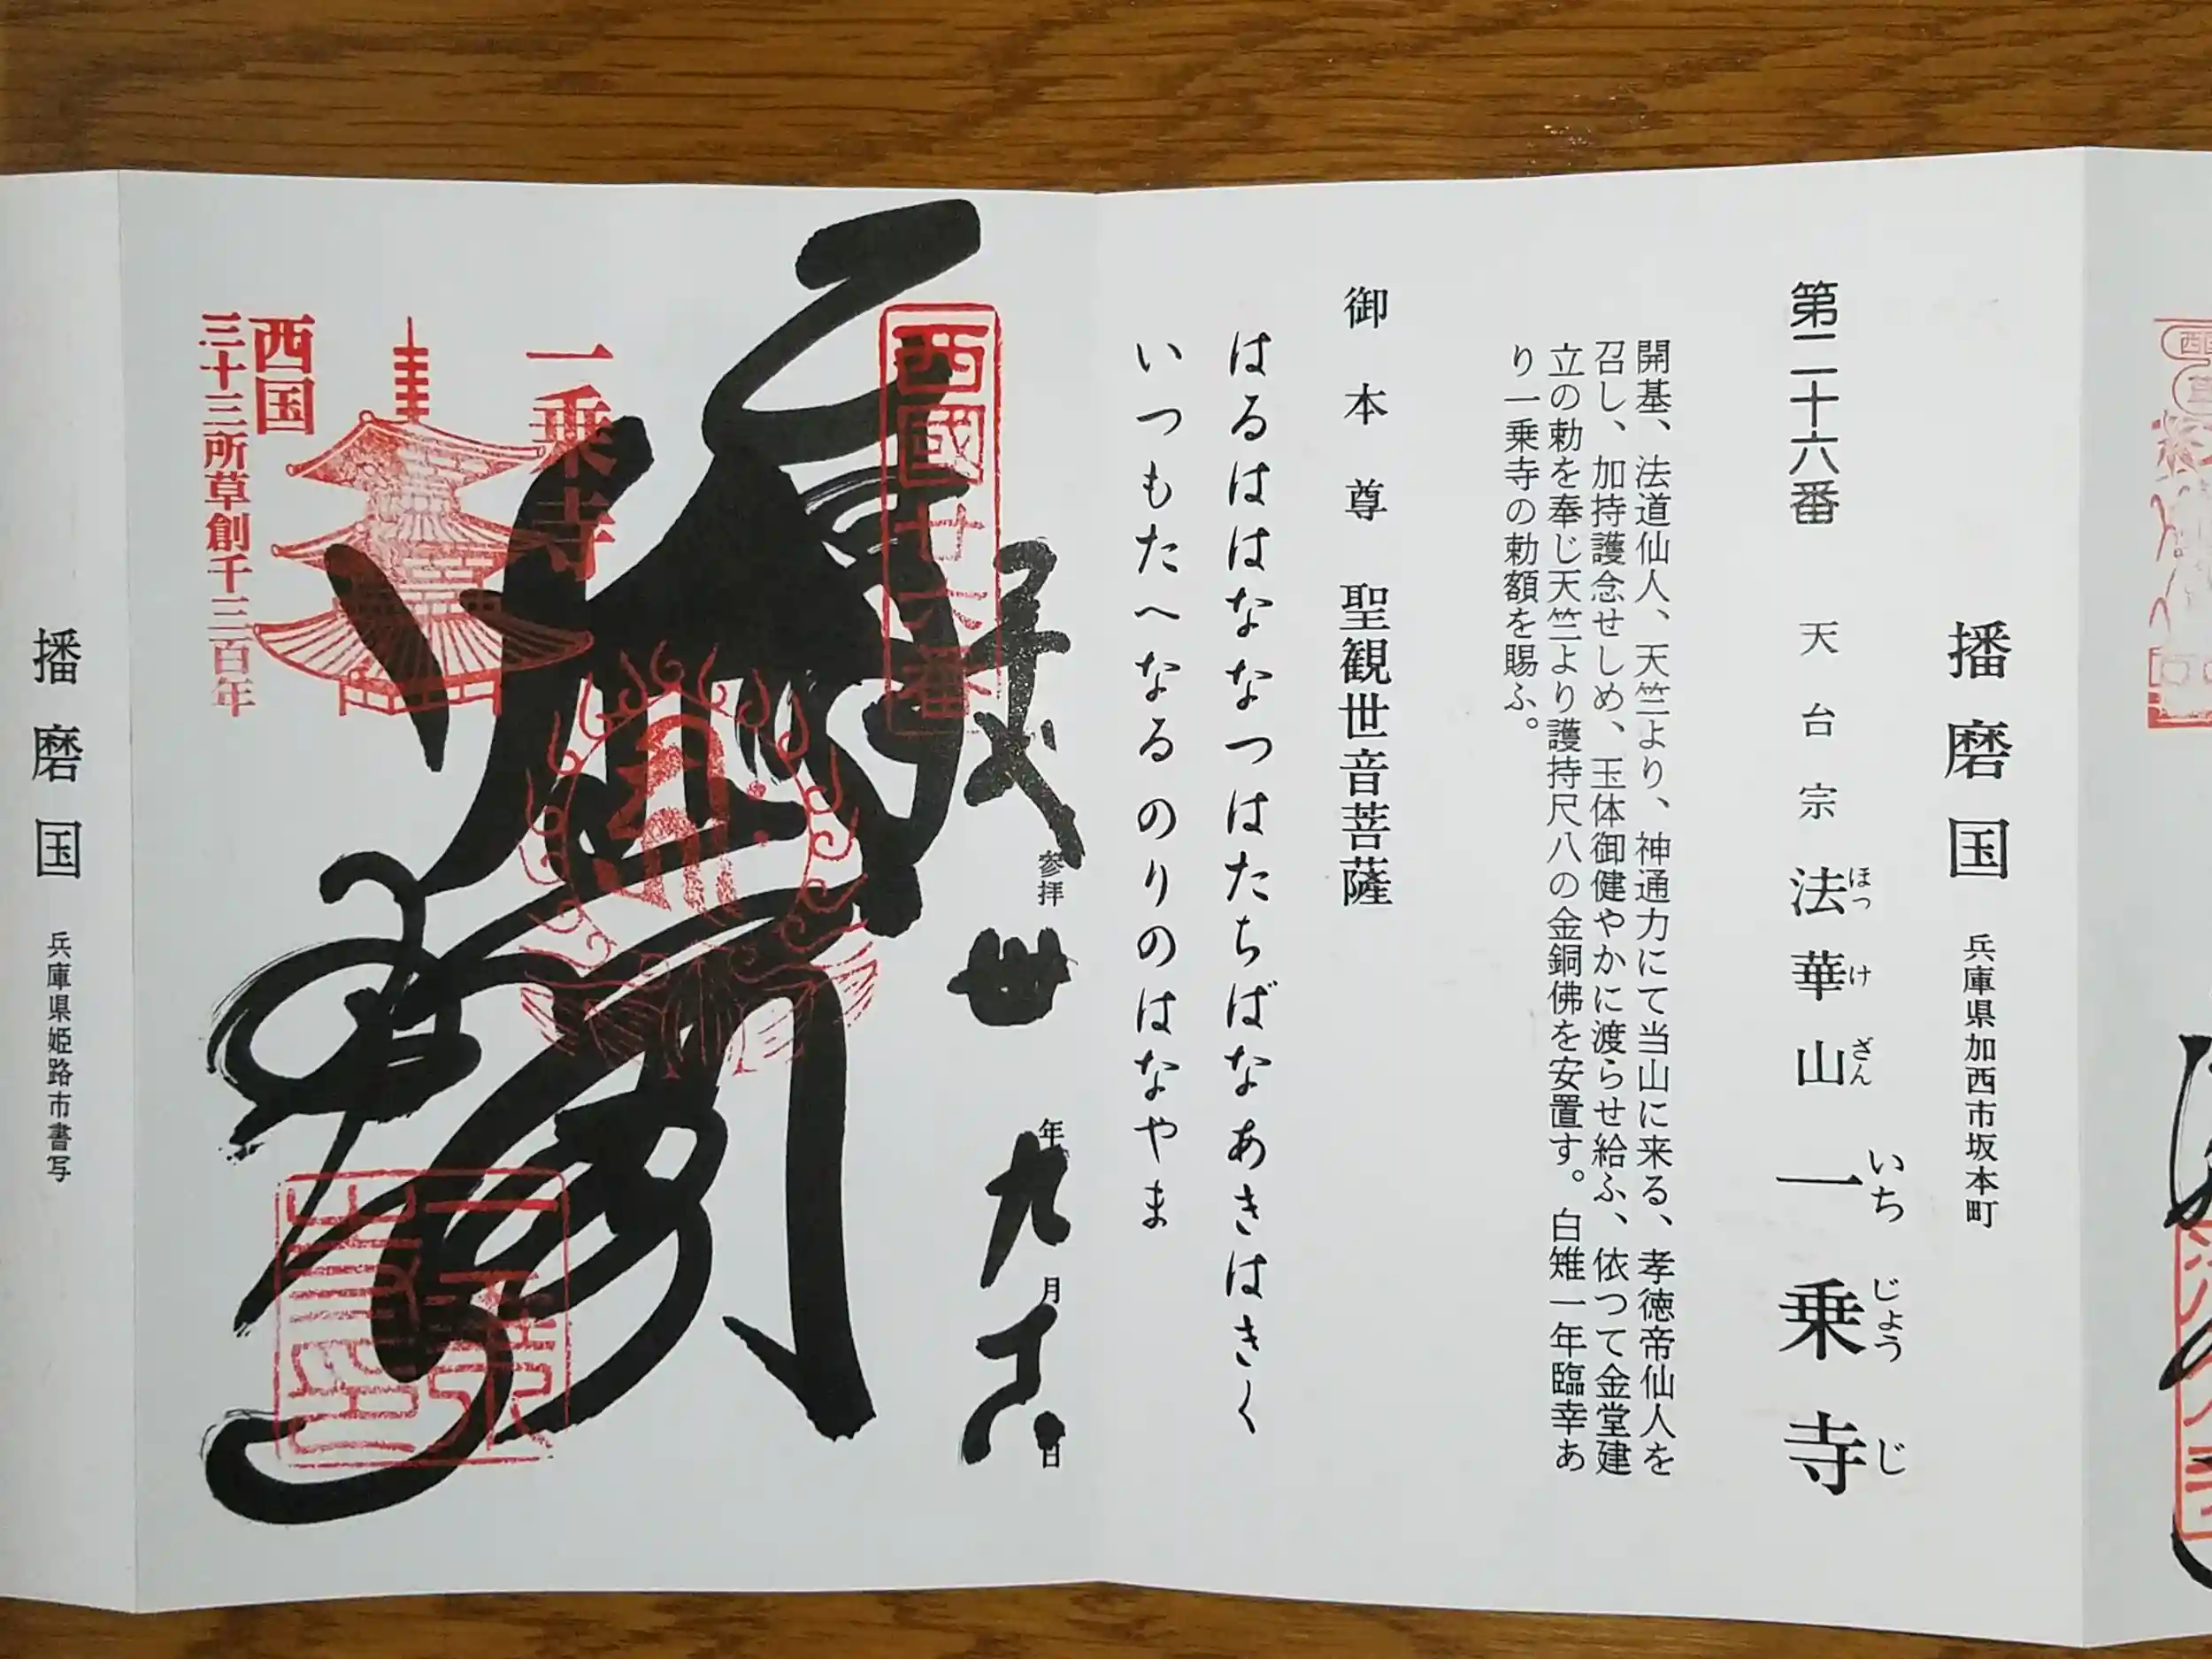 播磨国 兵庫県加西市坂本町
第二十六番 天台宗 法華山 一乗寺
ほっ け ざん いち じょう じ
開基、法道仙人、天竺より、神通力にて当山に来る、孝徳帝仙人を
召し、加持護念せしめ、玉体御健やかに渡らせ給ふ、依つて金堂建
立の勅を奉じ天竺より護持尺八の金銅佛を安置す。白雉一年臨幸あ
り一乗寺の勅額を賜ふ。
御本尊 聖観世音菩薩
はるははななつはたちばなあきはきく
いつもたへなるのりのはなやま
参拝 丗 年 九 月 十六 日
西國廿六番
一乗寺
西国
三十三所草創千三百年
播磨国 兵庫県姫路市書写